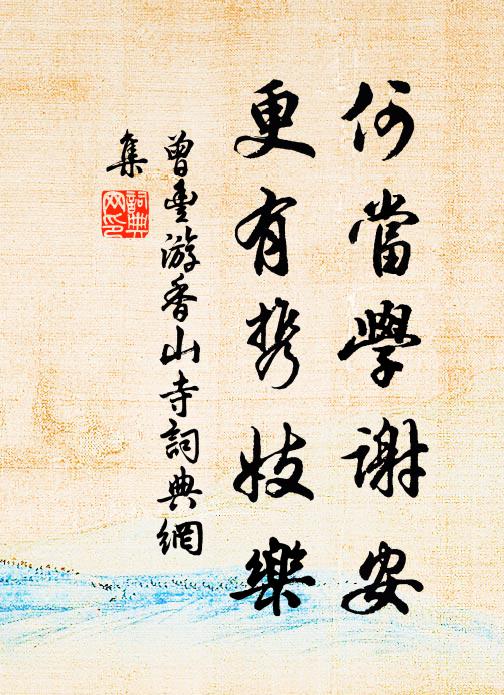 何當學謝安
更有携妓樂
曾豐游香山寺詞典網
集
詞典
网印